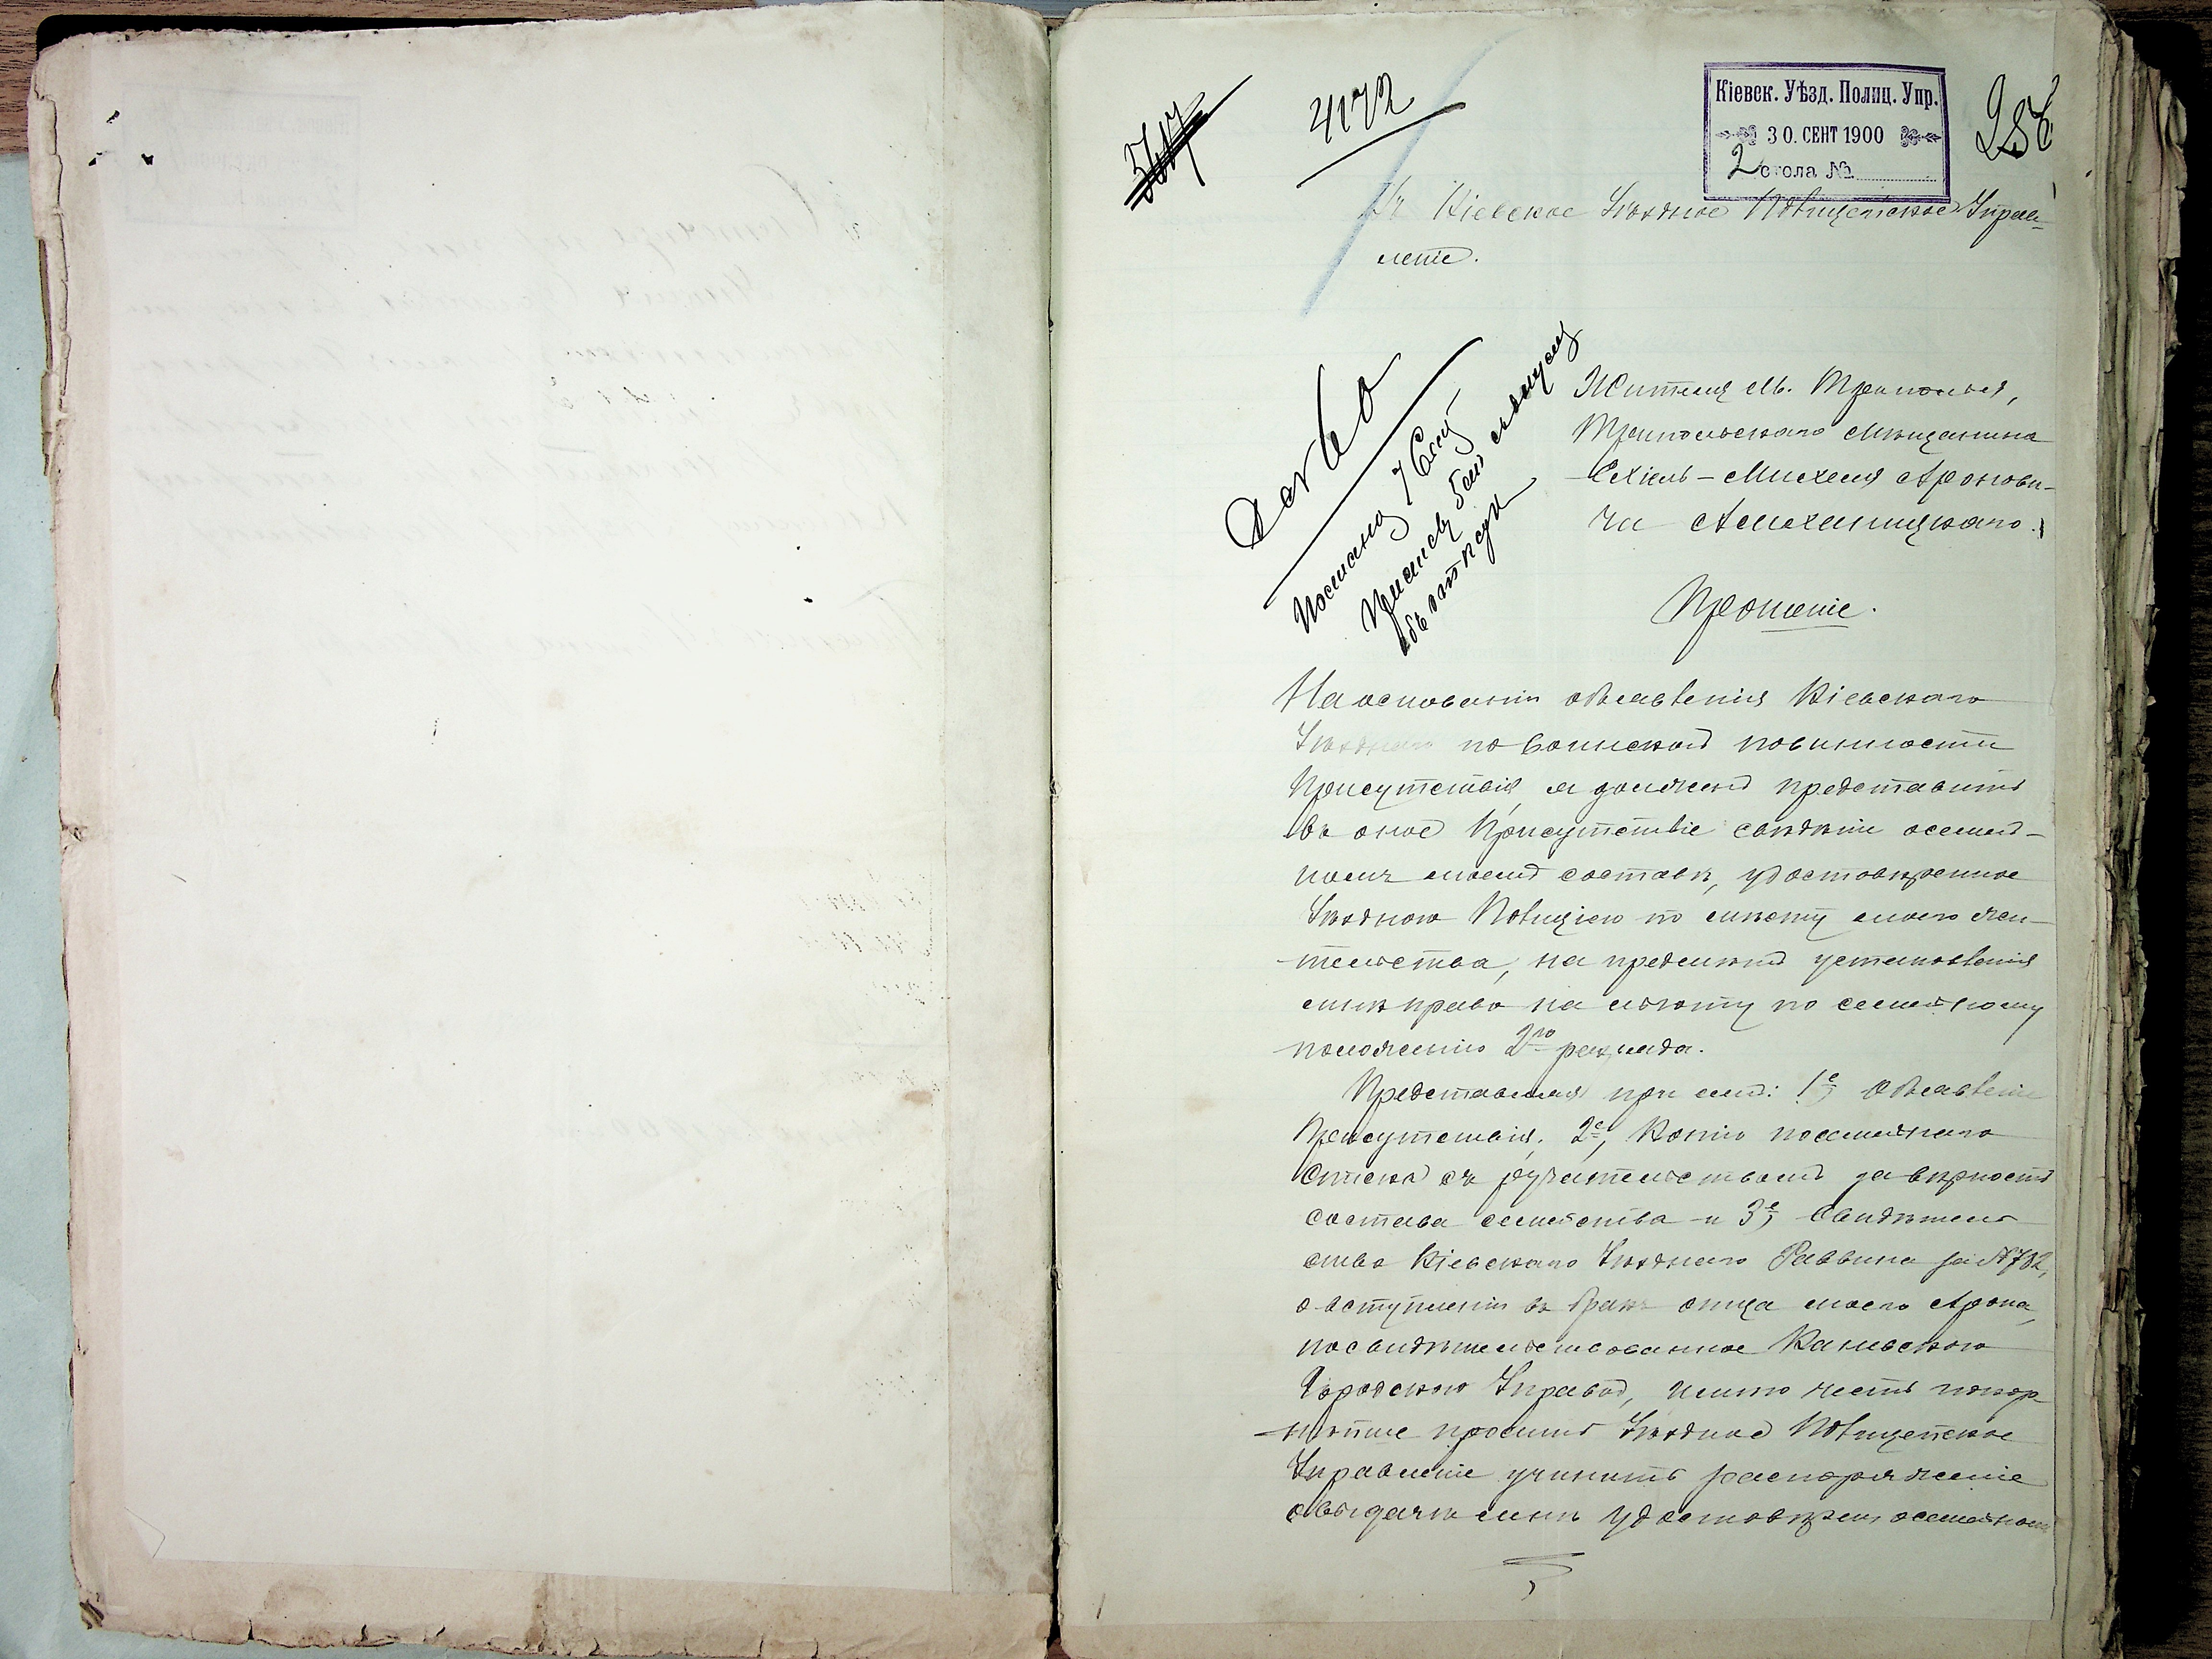 4172
Кіевск. Уѣзд. Полиц. Упр.
30. СЕНТ 1900
2 стола №
Въ Кіевское Уѣздное Полицейское Управ-
леніе.
Жителя м. Триполья,
Трипольскаго мѣщанина
Ехіель-Михеля Аронови-
ча
Прошеніе.
На основаніи объявленія Кіевскаго
Уѣзднаго по воинской повинности
Присутствія, я долженъ представить
въ оное Присутствіе свѣдѣніе о семей-
номъ моемъ составѣ, удостовѣренное
Уѣздною Полиціею по мѣсту моего жи-
тельства, на предметъ установленія
мнѣ право на льготу по семейному
положенію 2го разряда.
Представляя при семъ: 1е, Объявленіе
Присутствія, 2е, Копію посемейнаго
списка съ ручательствомъ за вѣрность
состава семейства и 3е, Свидѣтель
ство Кіевскаго Уѣзднаго Раввина за № 782,
о вступленіи въ бракъ отца моего Арона,
посвидѣтельствованное Каневскою
Городскою Управой, имѣю честь покор-
нѣйше просить Уѣздное Полицейское
Управленіе учинить распоряженіе
о выдачѣ мнѣ удостовѣрен. о семейном